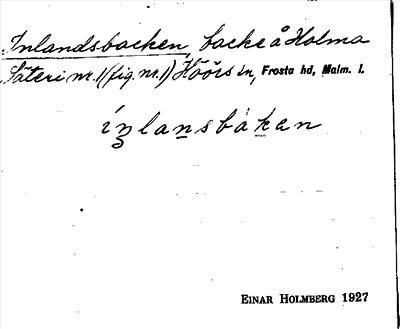 Inlandsbacken, backe å Holma
Säteri nr. 1 (fig. nr. 1) Höörs sn, Frosta hd, Malm. l.
íņlansbàken
EINAR HOLMBERG 1927